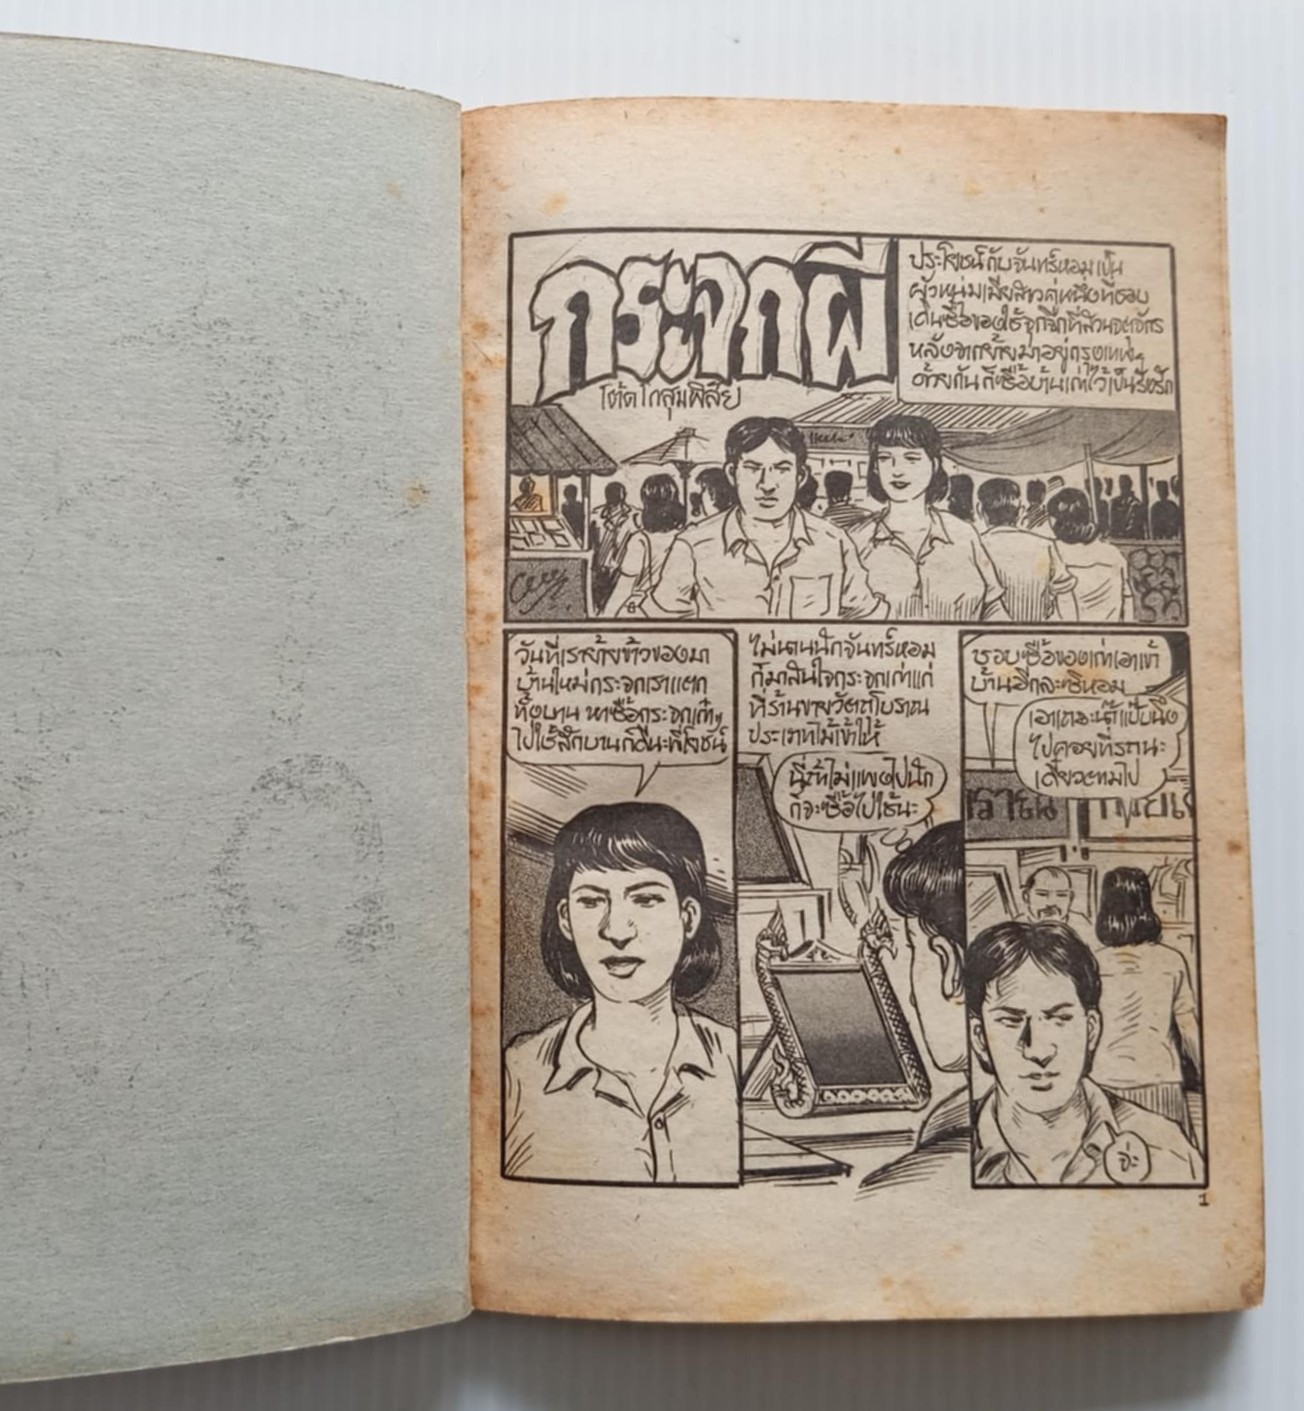 กระจกผี
โต้ด โกสุมพิสัย
ประโยชน์กับจันทร์หอมเป็น
ผัวหนุ่มเมียสาวคู่หนึ่งที่ชอบ
เดินซื้อของใช้จุกจิกที่สวนจตุจักร
หลังจากย้ายมาอยู่กรุงเทพฯ
ด้วยกันก็ซื้อบ้านเก่าไว้เป็นรังรัก
วันที่เราย้ายข้าวของมา
บ้านใหม่กระจกเราแตก
ทั้งบาน หาซื้อกระจกเก่าๆ
ไปใช้สักบานก็ดีนะพี่โยชน์
ไม่นานนักจันทร์หอม
ก็มาสนใจกระจกเก่าแก่
ที่ร้านขายวัตถุโบราณ
ประเภทไม้เข้าให้
นี่ถ้าไม่แพงไปนัก
ก็จะซื้อไปใช้นะ
ชอบซื้อของเก่าเอาเข้า
บ้านอีกละซิหอม
เอาเถอะน่าแป๊บนึง
ไปคอยที่รถนะ
เดี๋ยวตามไป
ราณ
จ้ะ
1